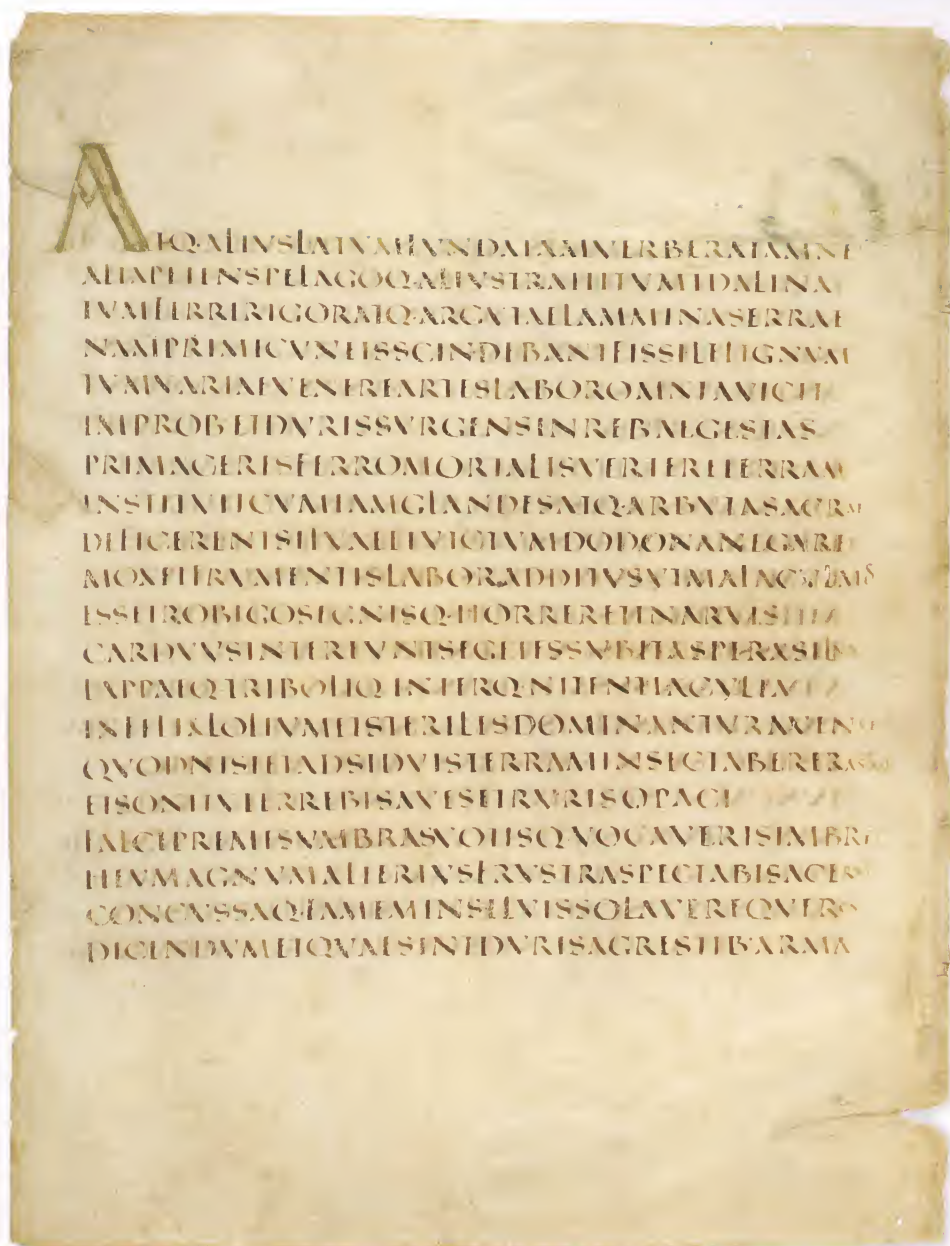 ATQ·ALIVSLATVMFVNDAIAMVERBERATAMNE
ALTAPETENSPELAGOQ·ALIVSTRAHITVMIDALINA
TVMFERRIRIGORATQ·ARGVTAELAMMINASERRAE
NAMPRIMICVNEISSCINDEBANTFISSILELIGNVM
TVMVARIAEVENEREARTESLABOROMNIAVICIT
IMPROB·ETDVRISSVRGENSINREB·AEGESTAS
PRIMACERISFERROMORTALISVERTERETERRAM
INSTITVITCVMIAMGLANDESATQ·ARBVTASACRA
DEFICERENTSILVAEETVICTVMDODONANEGARE
MOXETFRVMENTISLABORADDITVSVTMALACVLMOS
ESSETROBIGOSEGNISQ·HORRERETINARVIS
CARDVVSINTEREVNTSEGETESSVBITASPERASILV
LAPPAEQ·TRIBOLIQ·INTERQ·NITENTIACVLTA
INFELIXLOLIVMETSTERILESDOMINANTVRAVENA
QVODNISIETADSIDVISTERRAMINSECTABERERA
ETSONITVTERREBISAVESETRVRISOPACI
FALCEPREMESVMBRASVOTISQ·VOCAVERISIMBRE
HEVMAGNVMALTERIVSFRVSTRASPECTABISACER
CONCVSSAQ·FAMEMINSILVISSOLAVEREQVERC
DICENDVMETQVAESINTDVRISAGRESTIB·ARMA